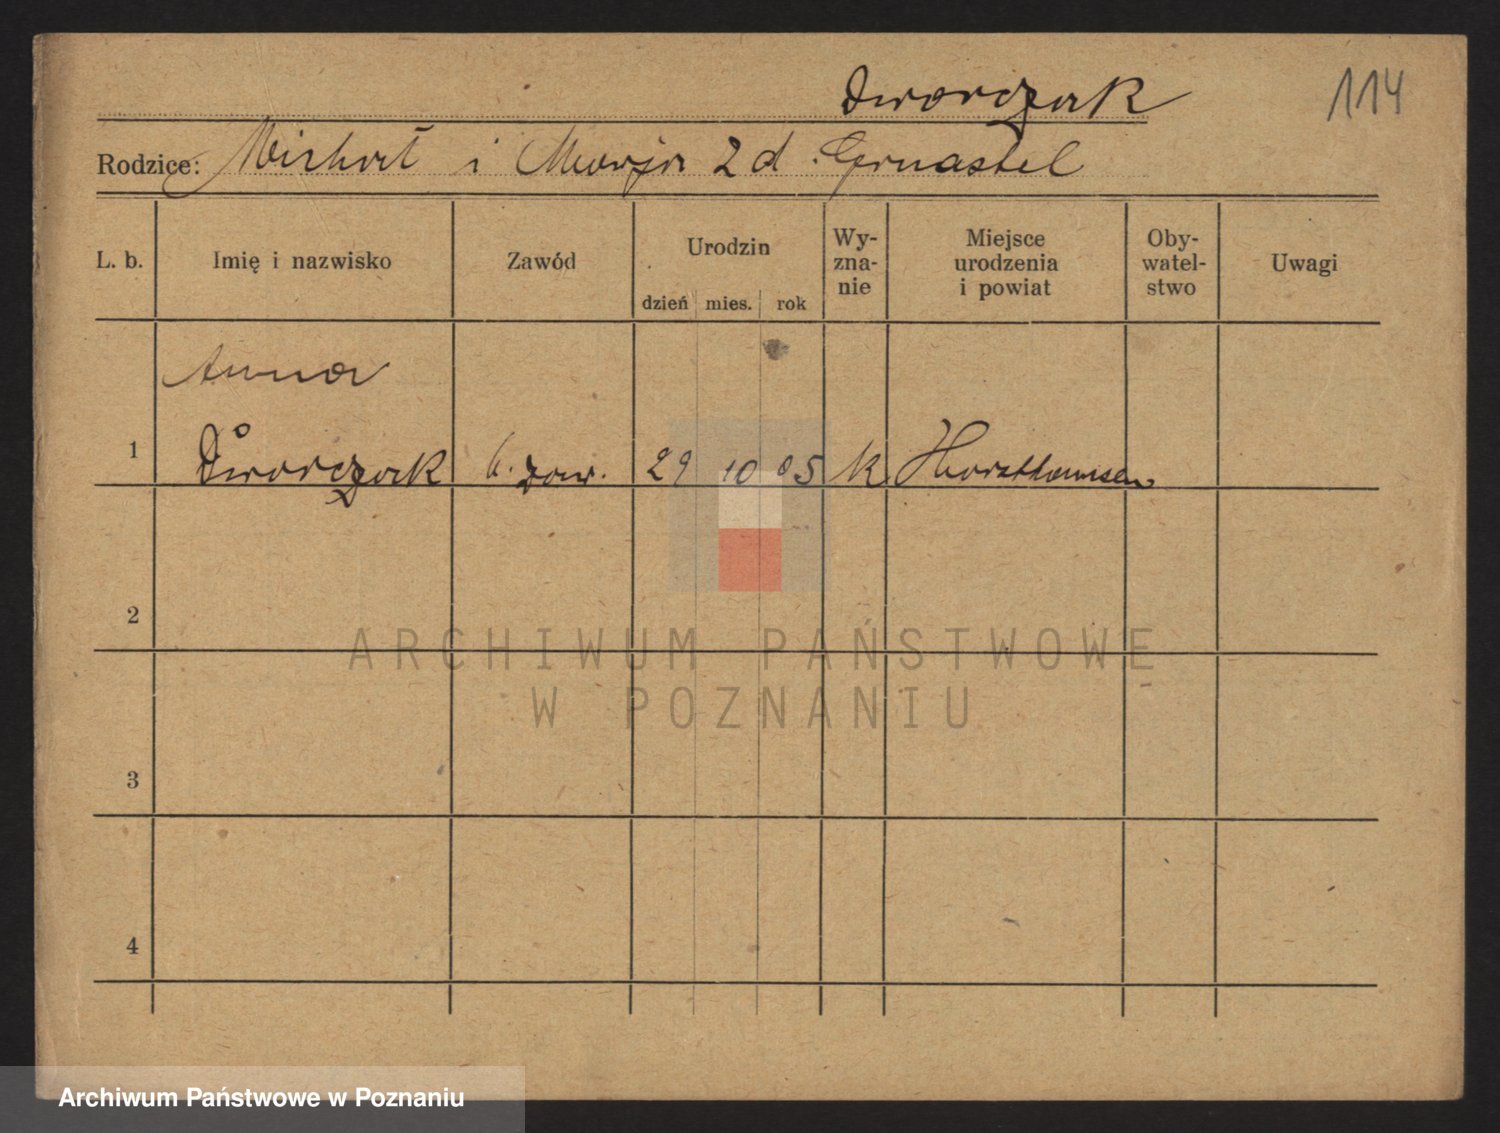 Dworczak
114
Rodzice: Michał i Marja 2 d. Gruastel
L. b.
Imię i nazwisko
Zawód
Urodzin
dzień mies. rok
Wy-
zna-
nie
Miejsce
urodzenia
i powiat
Oby-
watel-
stwo
Uwagi
Anna
1 Dworczak b. zaw. 29 10 05 k Horsthausen
2
3
4
ARCHIWUM PAŃSTWOWE
W POZNANIU
Archiwum Państwowe w Poznaniu